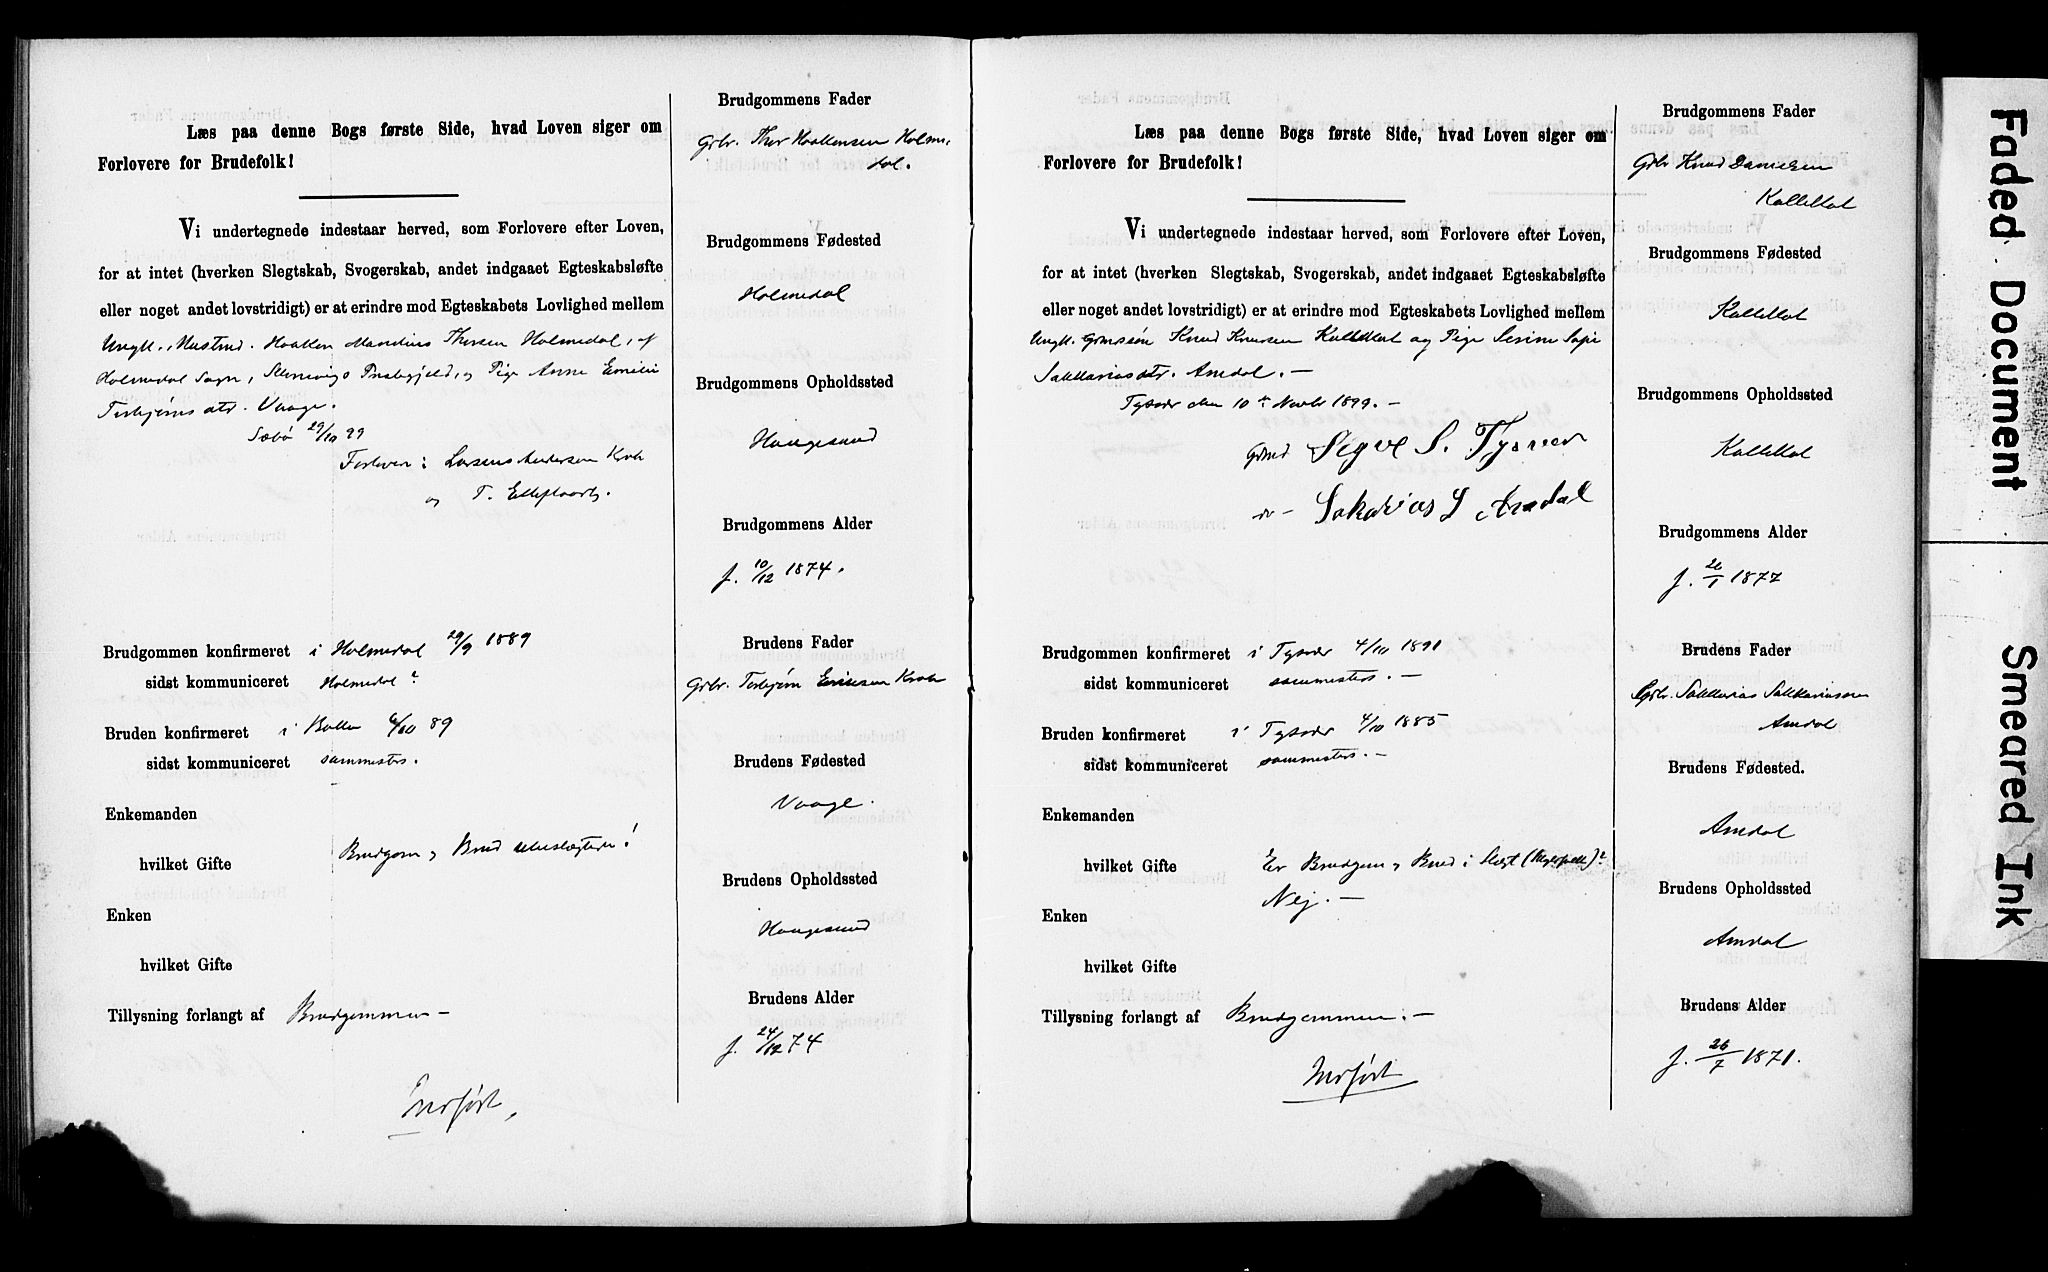 Læs paa denne Bogs første Side, hvad Loven siger om
Forlovere for Brudefolk!
Vi undertegnede indestaar herved, som Forlovere efter Loven,
for at intet (hverken Slegtskab, Svogerskab, andet indgaaet Egteskabsløfte
eller noget andet lovstridigt) er at erindre mod Egteskabets Lovlighed mellem
Ungk., Haakon Mandius Thorsen Holmedal, af
Holmedal Sogn, Præstegjeld, og Pige Anne Emilie
Torbjørnsdtr. Vaage.
Sæbø 29/10 99
Forlovere: Andersen
og T.
Brudgommen konfirmeret i Holmedal 29/9 1889
sidst kommuniceret Holmedal?
Bruden konfirmeret i 6/10 89
sidst kommuniceret sammesteds.
Enkemanden
hvilket Gifte Brudgom og Brud ubeslægtede!
Enken
hvilket Gifte
Tillysning forlangt af Brudgommen —
Indført,
Brudgommens Fader
Gbr. Thor Haakonsen Holme-
dal.
Brudgommens Fødested
Holmedal
Brudgommens Opholdssted
Haugesund
Brudgommens Alder
f. 10/12 1874.
Brudens Fader
Gbr. Torbjørn Ericksen
Brudens Fødested
Vaage.
Brudens Opholdssted
Haugesund
Brudens Alder
f. 24/12 74
Læs paa denne Bogs første Side, hvad Loven siger om
Forlovere for Brudefolk!
Vi undertegnede indestaar herved, som Forlovere efter Loven,
for at intet (hverken Slegtskab, Svogerskab, andet indgaaet Egteskabsløfte
eller noget andet lovstridigt) er at erindre mod Egteskabets Lovlighed mellem
Ungk. Knud Knudsen Kallekot og Pige Serine
Sakkariasdtr. Amdal. —
Tysvær den 10de Novbr 1899. —
Grmd Sigve S. Tysvær
do — Sakarias S Amdal
Brudgommen konfirmeret i Tysvær 4/10 1891
sidst kommuniceret sammesteds. —
Bruden konfirmeret i Tysvær 4/10 1885
sidst kommuniceret sammesteds. —
Enkemanden
hvilket Gifte Er Brudgom og Brud i Slegt
Nej. —
Enken
hvilket Gifte
Tillysning forlangt af Brudgommen. —
Indført
Brudgommens Fader
Gbr Knud Danielsen
Kallekot
Brudgommens Fødested
Kallekot
Brudgommens Opholdssted
Kallekot
Brudgommens Alder
f. 26/1 1877
Brudens Fader
Gbr. Sakkarias Sakkariassen
Amdal
Brudens Fødested.
Amdal
Brudens Opholdssted
Amdal
Brudens Alder
f. 26/7 1871.
Faded Document
Smeared Ink